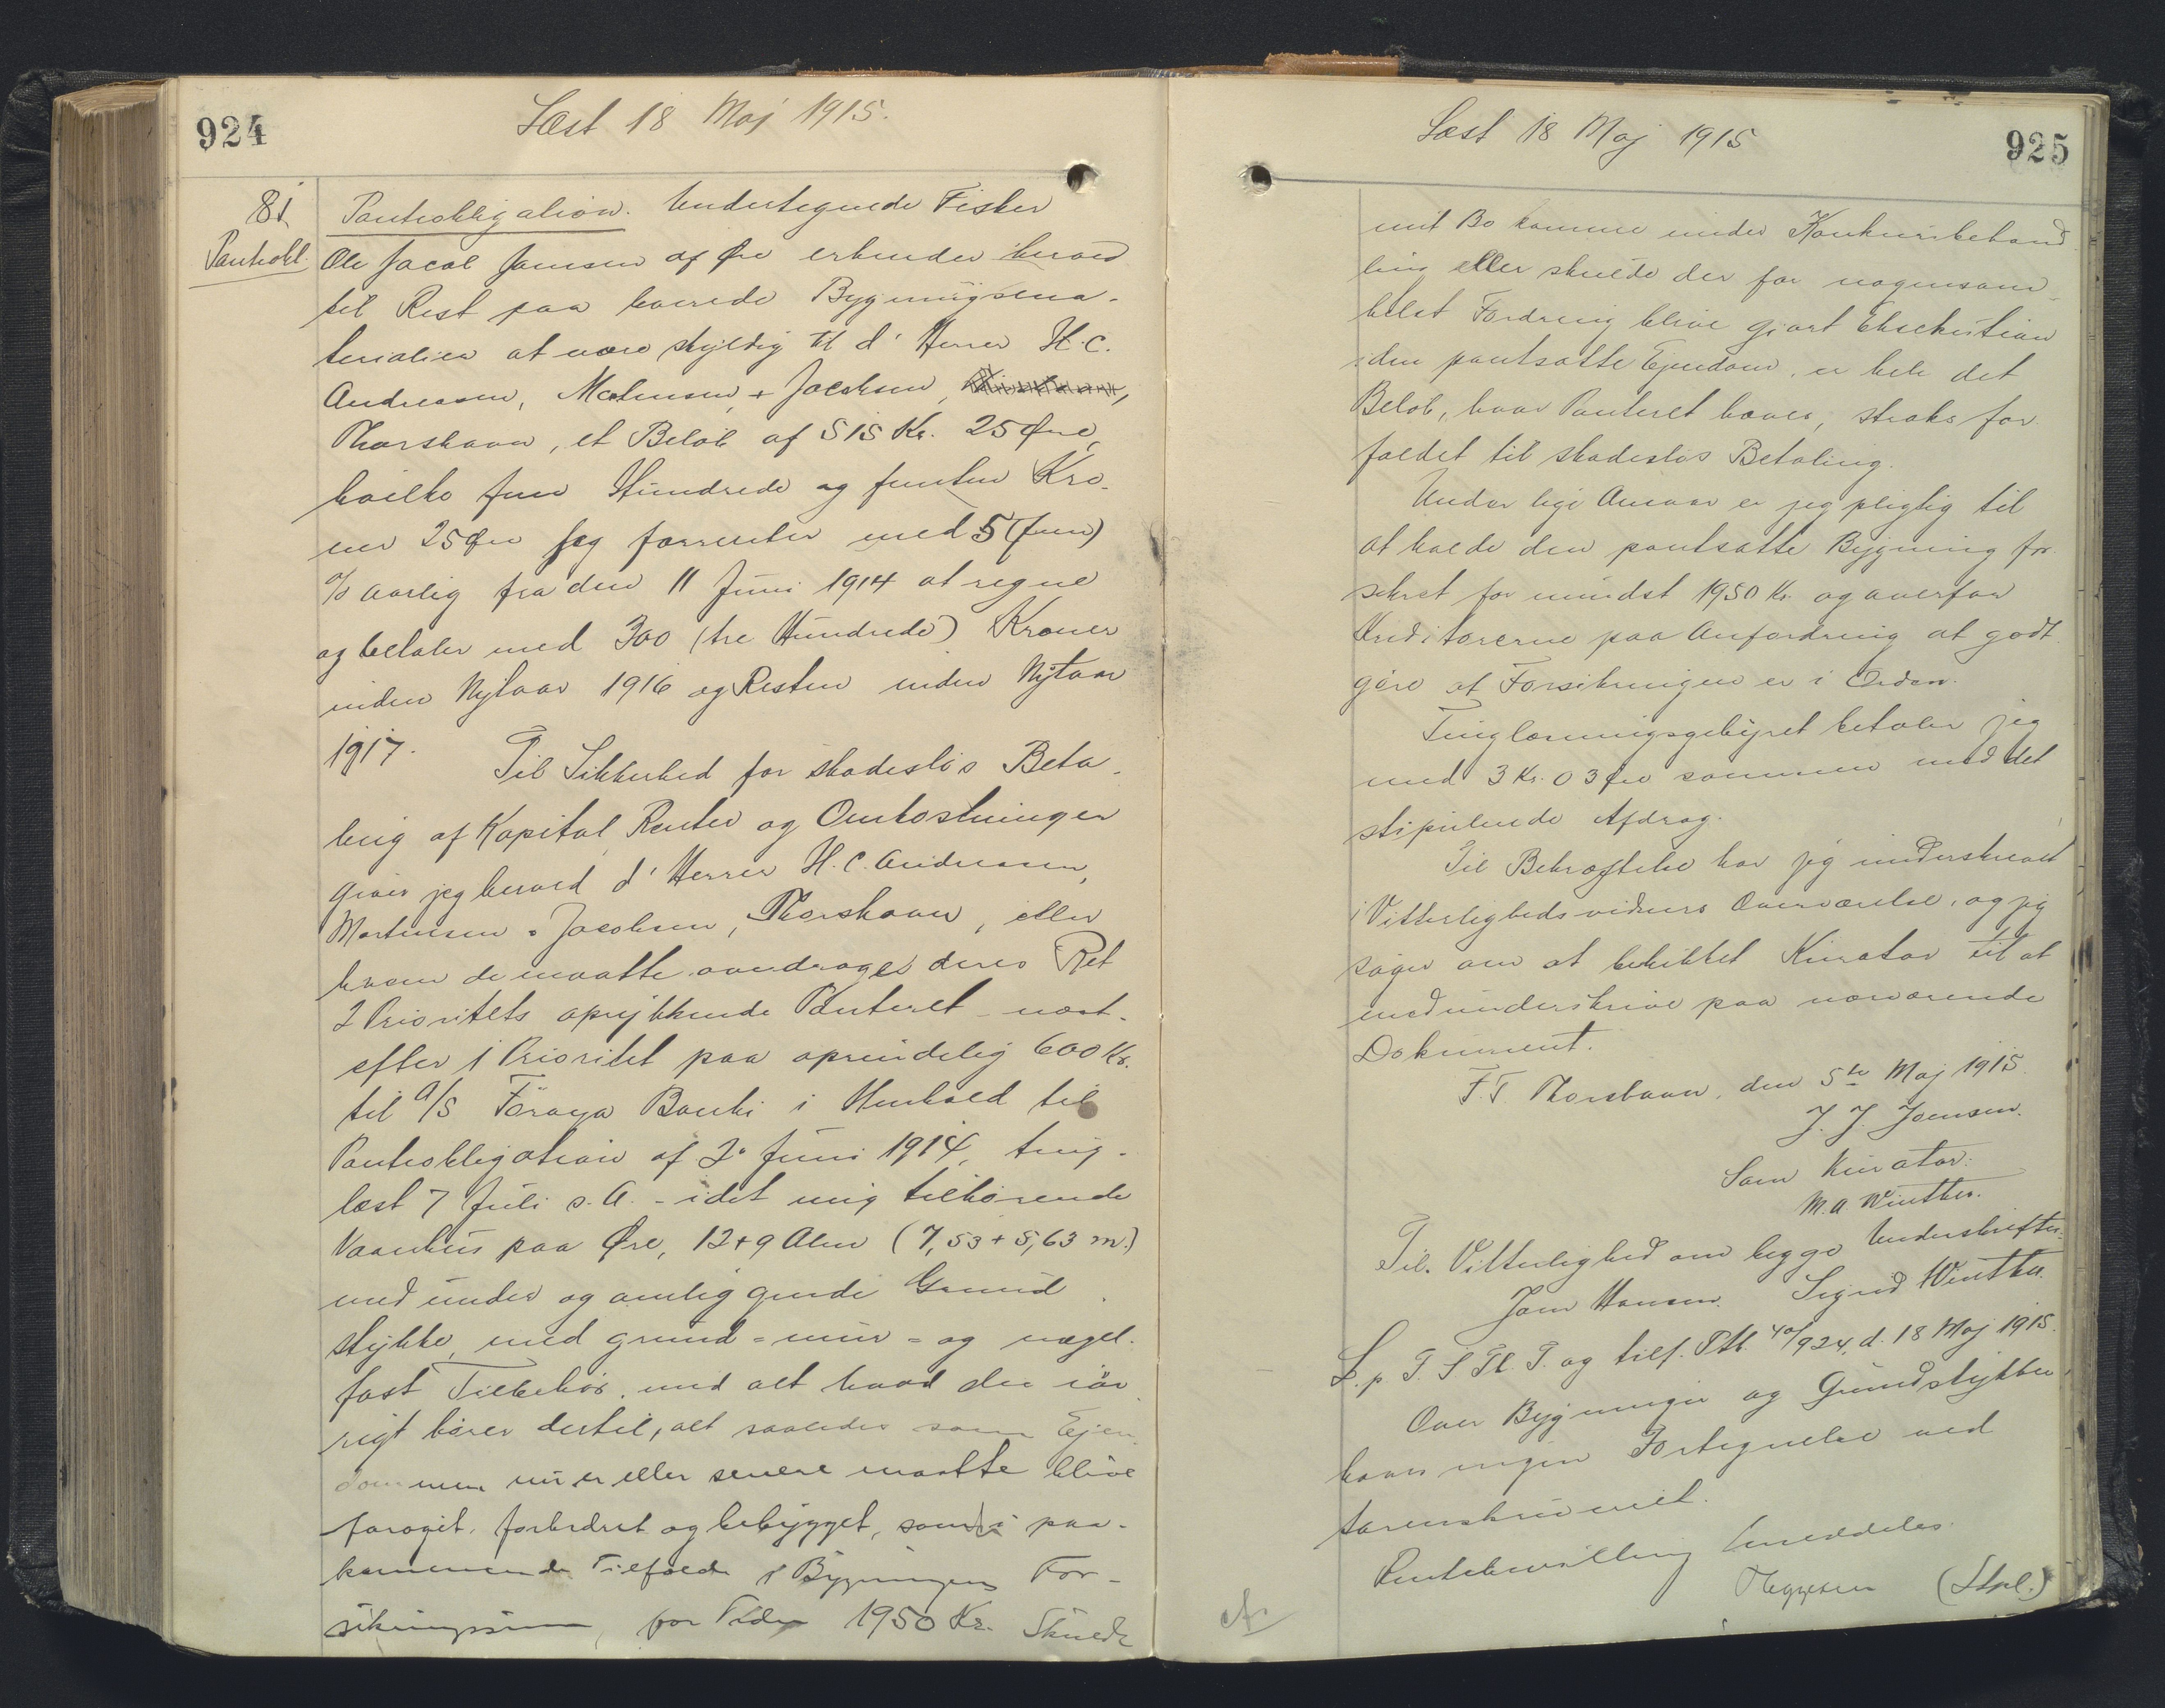 924
Læst 18 Maj 1915.
81
Pantobl.
Pantobligation. Undertegnede Fisker
Ole Jacob Joensen af Øre erkender herved
til Rest paa leverede Bygningsma-
terialier at være skyldig til d' Herrer H. C.
Andreasen, Mortensen + Jacobsen,
Thorshavn, et Beløb af 515 Kr. 25 Øre,
hvilke fem Hundrede og femten Kro-
ner 25 Øre jeg forrenter med 5 (fem)
% aarlig fra den 11 Juni 1914 at regne
og betaler med 300 (tre Hundrede) Kroner
inden Nytaar 1916 og Resten inden Nytaar
1917.
Til Sikkerhed for skadesløs Beta-
ling af Kapital, Renter og Omkostninger
giver jeg herved d' Herrer H. C. Andreasen,
Mortensen & Jacobsen, Thorshavn, eller
hvem de maatte overdrage deres Ret
2 Prioritets oprykkende Panteret - næst-
efter 1 Prioritet paa oprindelig 600 Kr.
til A/S Föroya Banki i Henhold til
Pantobligation af 2 Juni 1914, ting-
læst 7 Juli s. A. - i det mig tilhørende
Vaanhus paa Øre, 12 + 9 Alen (7,53 + 5,63 m.)
med under og omliggende Grund
stykke, med grund- mur- og nagel-
fast Tilbehør, med alt hvad der iøv
rigt hører dertil, alt saaledes som Ejen
dommen nu er eller senere maatte blive
forøget, forbedret og bebygget, samt i paa-
kommende Tilfælde i Bygningens For-
sikringssum, for Tiden 1950 Kr. Skulde
Læst 18 Maj 1915
925
mit Bo komme under Konkursbehand
ling eller skulde der for nogensom-
helst Fordring blive gjort Eksekution
i den pantsatte Ejendom, er hele det
Beløb, hvor Panteret haves, straks for-
faldet til skadesløs Betaling.
Under lige Ansvar er jeg pligtig til
at holde den pantsatte Bygning for-
sikret for mindst 1950 Kr. og overfor
Kreditorerne paa Anfordring at godt
gøre at Forsikringen er i Orden.
Tinglæsningsgebyret betaler jeg
med 3 Kr. 03 Øre sammen med det
stipulerede Afdrag.
Til Bekræftelse har jeg underskrevet
i Vitterlighedsvidners Overværelse, og jeg
søger om at beskikket Kurator til at
medunderskrive paa nærværende
Dokument.
F. T. Thorshavn, den 5te Maj 1915
J. J. Joensen.
Som Kurator:
M. A. Winther.
Til Vitterlighed om begge Underskrifter.
Joen Hansen. Sigrid Winther.
L. p. T. S Tl. T. og tilf. Ptb. 40/924, d. 18 Maj 1915.
Over Bygninger og Grundstykker
haves ingen Fortegnelse ved
Sorenskriveriet.
meddeles.
(Stpl.)